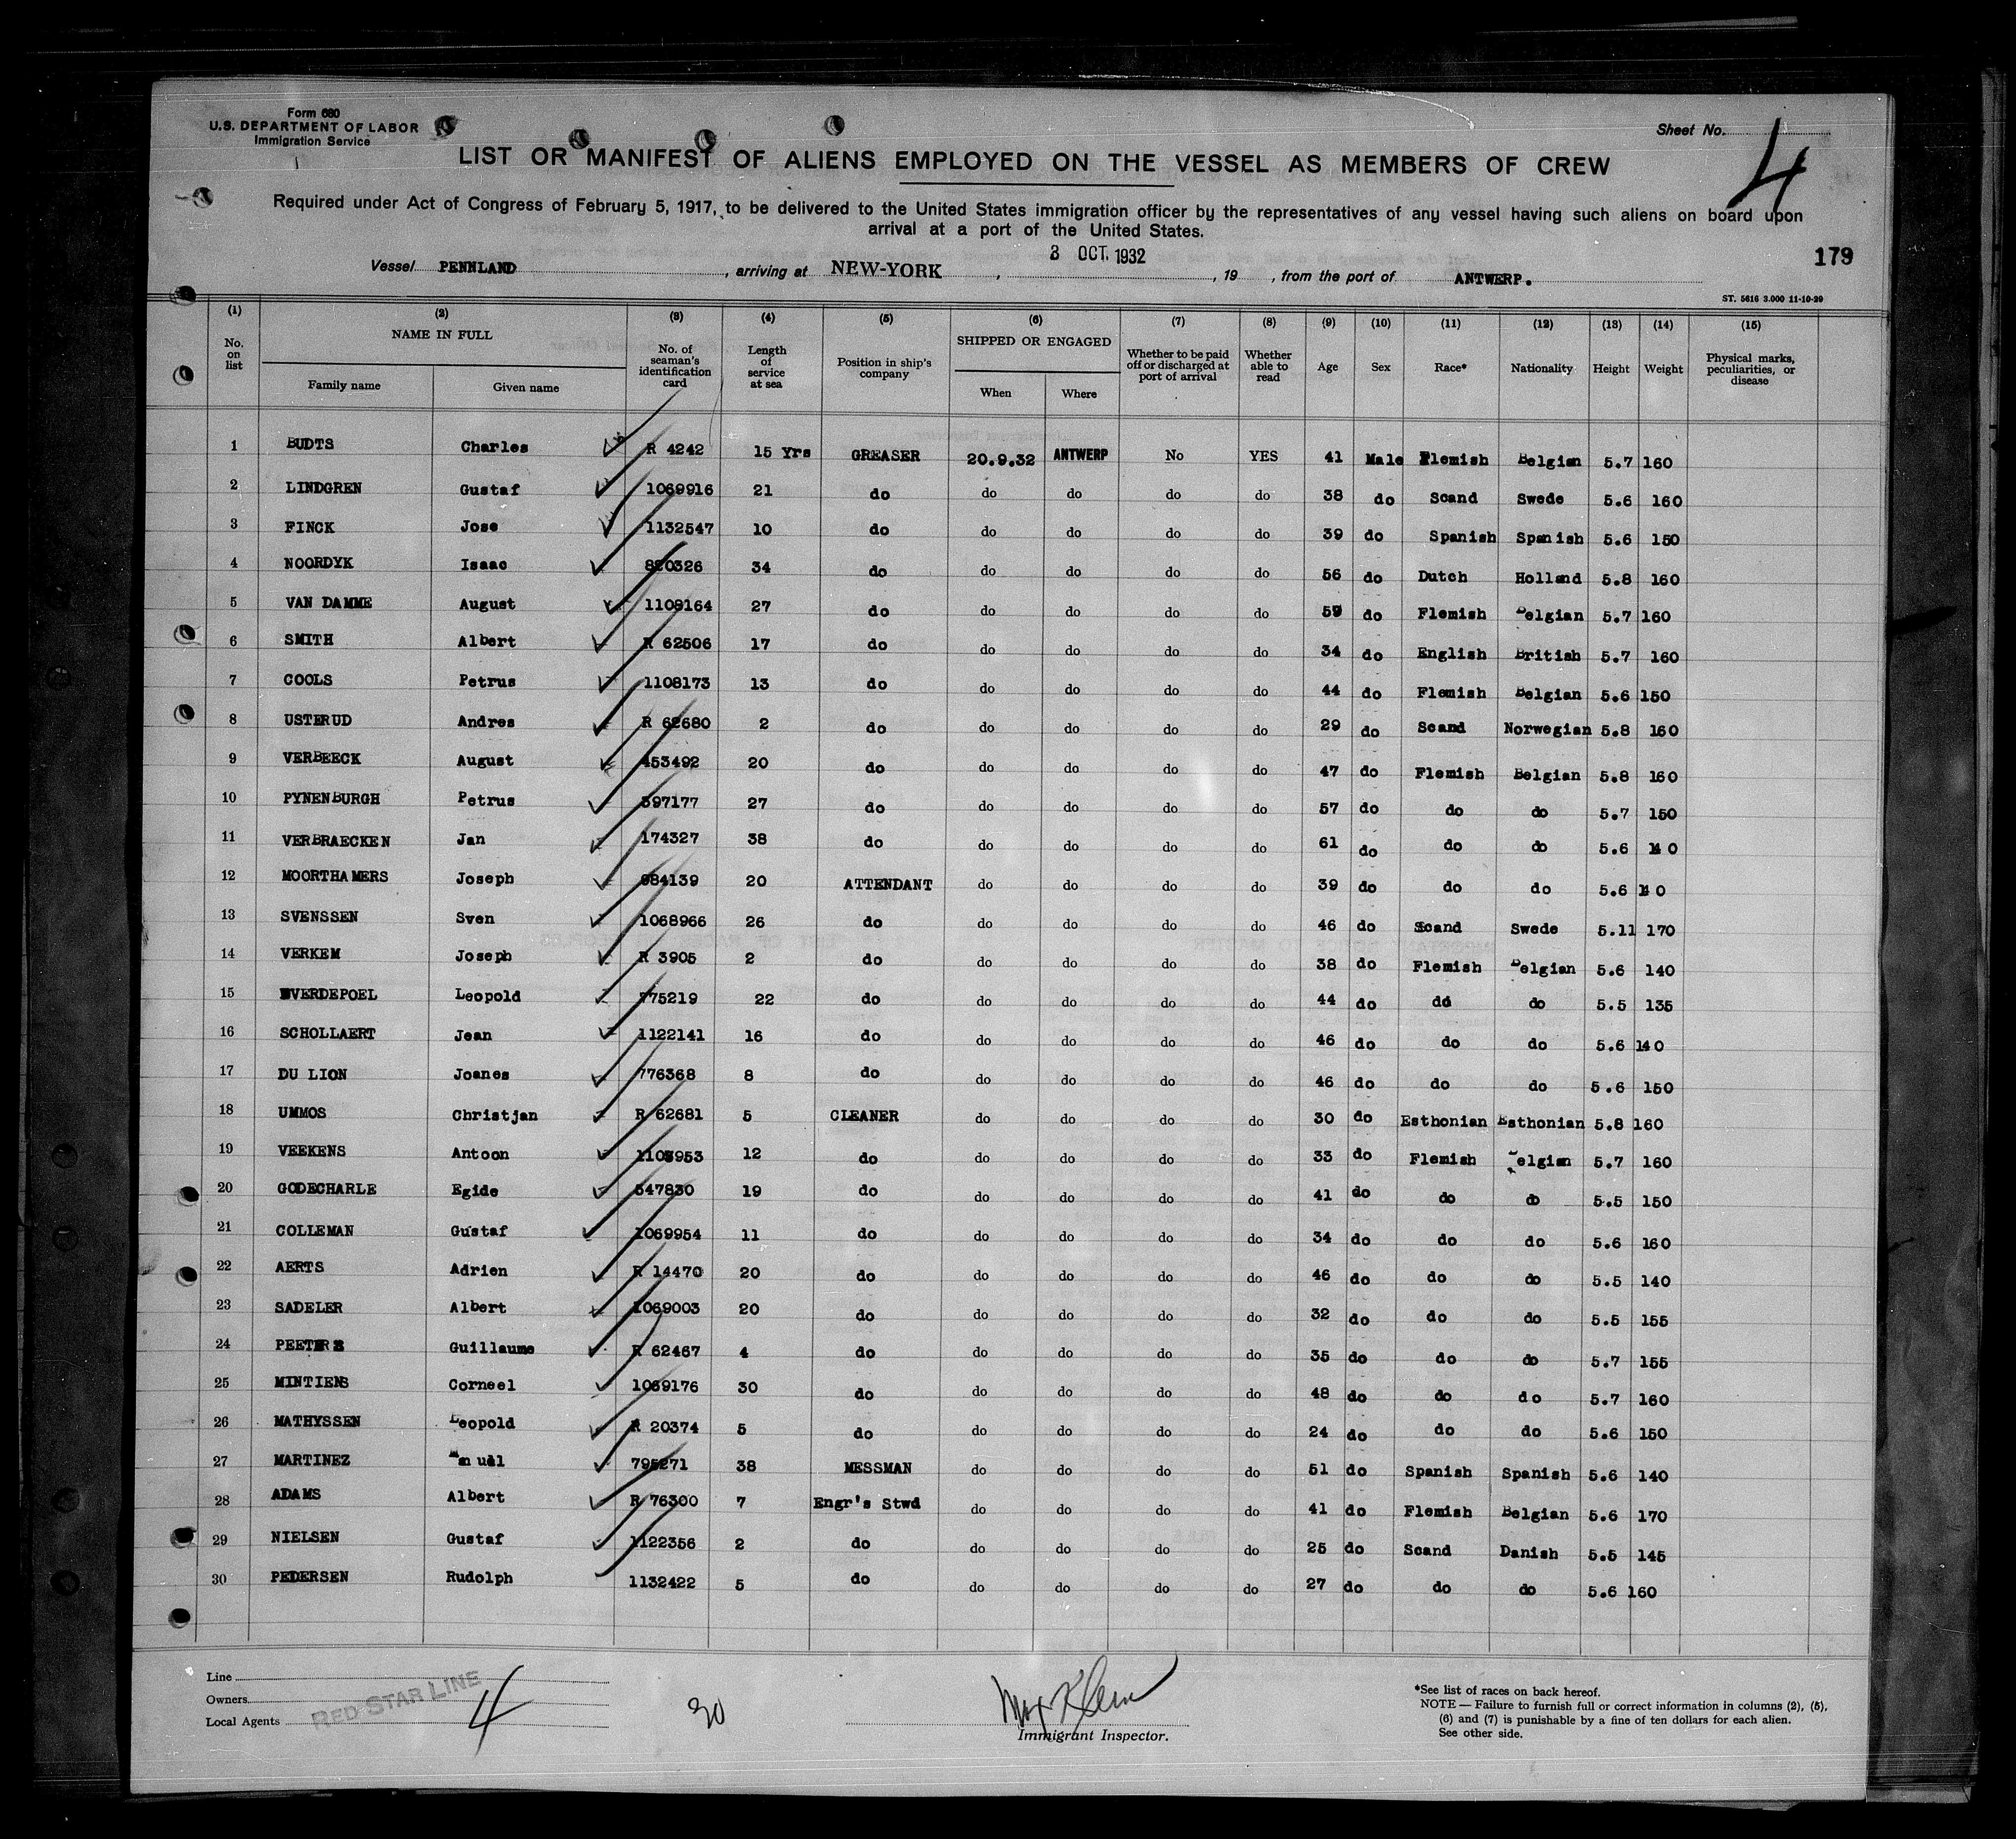 Form 680
U.S. DEPARTMENT OF LABOR
Immigration Service
Sheet No. 4
LIST OR MANIFEST OF ALIENS EMPLOYED ON THE VESSEL AS MEMBERS OF CREW
Required under Act of Congress of February 5, 1917, to be delivered to the United States immigration officer by the representatives of any vessel having such aliens on board upon
arrival at a port of the United States.
179
Vessel PENNLAND, arriving at NEW-YORK, 3 OCT. 1932, 19 , from the port of ANTWERP.
ST. 5616 3.000 11-10-29
(1) (2) (3) (4) (5) (6) (7) (8) (9) (10) (11) (12) (13) (14) (15)
No. on list NAME IN FULL Family name Given name No. of seaman's identification card Length of service at sea Position in ship's company SHIPPED OR ENGAGED When Where Whether to be paid off or discharged at port of arrival Whether able to read Age Sex Race* Nationality Height Weight Physical marks, peculiarities, or disease
1 BUDTS Charles R 4242 15 Yrs GREASER 20.9.32 ANTWERP No YES 41 Male Flemish Belgian 5.7 160
2 LINDGREN Gustaf 1069916 21 do do do do do 38 do Scand Swede 5.6 160
3 FINCK Jose 1132547 10 do do do do do 39 do Spanish Spanish 5.6 150
4 NOORDYK Isaac 820326 34 do do do do do 56 do Dutch Holland 5.8 160
5 VAN DAMME August 1108164 27 do do do do do 59 do Flemish Belgian 5.7 160
6 SMITH Albert R 62506 17 do do do do do 34 do English British 5.7 160
7 COOLS Petrus 1108173 13 do do do do do 44 do Flemish Belgian 5.6 150
8 USTERUD Andres R 62680 2 do do do do do 29 do Scand Norwegian 5.8 160
9 VERBEECK August 453492 20 do do do do do 47 do Flemish Belgian 5.8 160
10 PYNENBURGH Petrus 397177 27 do do do do do 57 do do do 5.7 150
11 VERBRAECKEN Jan 174327 38 do do do do do 61 do do do 5.6 140
12 MOORTHAMERS Joseph 984139 20 ATTENDANT do do do do 39 do do do 5.6 140
13 SVENSSEN Sven 1068966 26 do do do do do 46 do Scand Swede 5.11 170
14 VERKEM Joseph R 3905 2 do do do do do 38 do Flemish Belgian 5.6 140
15 EVERDEPOEL Leopold 775219 22 do do do do do 44 do do do 5.5 135
16 SCHOLLAERT Jean 1122141 16 do do do do do 46 do do do 5.6 140
17 DU LION Joanes 776368 8 do do do do do 46 do do do 5.6 150
18 UMMOS Christjan R 62681 5 CLEANER do do do do 30 do Esthonian Esthonian 5.8 160
19 VEEKENS Antoon 12 do do do do do 33 do Flemish Belgian 5.7 160
20 GODECHARLE Egide 547830 19 do do do do do 41 do do do 5.5 150
21 COLLEMAN Gustaf 1069954 11 do do do do do 34 do do do 5.6 160
22 AERTS Adrien R 14470 20 do do do do do 46 do do do 5.5 140
23 SADELER Albert 1069003 20 do do do do do 32 do do do 5.5 155
24 PEETERS Guillaume R 62467 4 do do do do do 35 do do do 5.7 155
25 MINTIENS Corneel 1069176 30 do do do do do 48 do do do 5.7 160
26 MATHYSSEN Leopold R 20374 5 do do do do do 24 do do do 5.6 150
27 MARTINEZ Manuel 795271 38 MESSMAN do do do do 51 do Spanish Spanish 5.6 140
28 ADAMS Albert R 76300 7 Engr's Stwd do do do do 41 do Flemish Belgian 5.6 170
29 NIELSEN Gustaf 1122356 2 do do do do do 25 do Scand Danish 5.5 145
30 PEDERSEN Rudolph 1132422 5 do do do do do 27 do do do 5.6 160
Line
Owners
Local Agents
RED STAR LINE
4
30
Max Klein
Immigrant Inspector.
*See list of races on back hereof.
NOTE — Failure to furnish full or correct information in columns (2), (5),
(6) and (7) is punishable by a fine of ten dollars for each alien.
See other side.